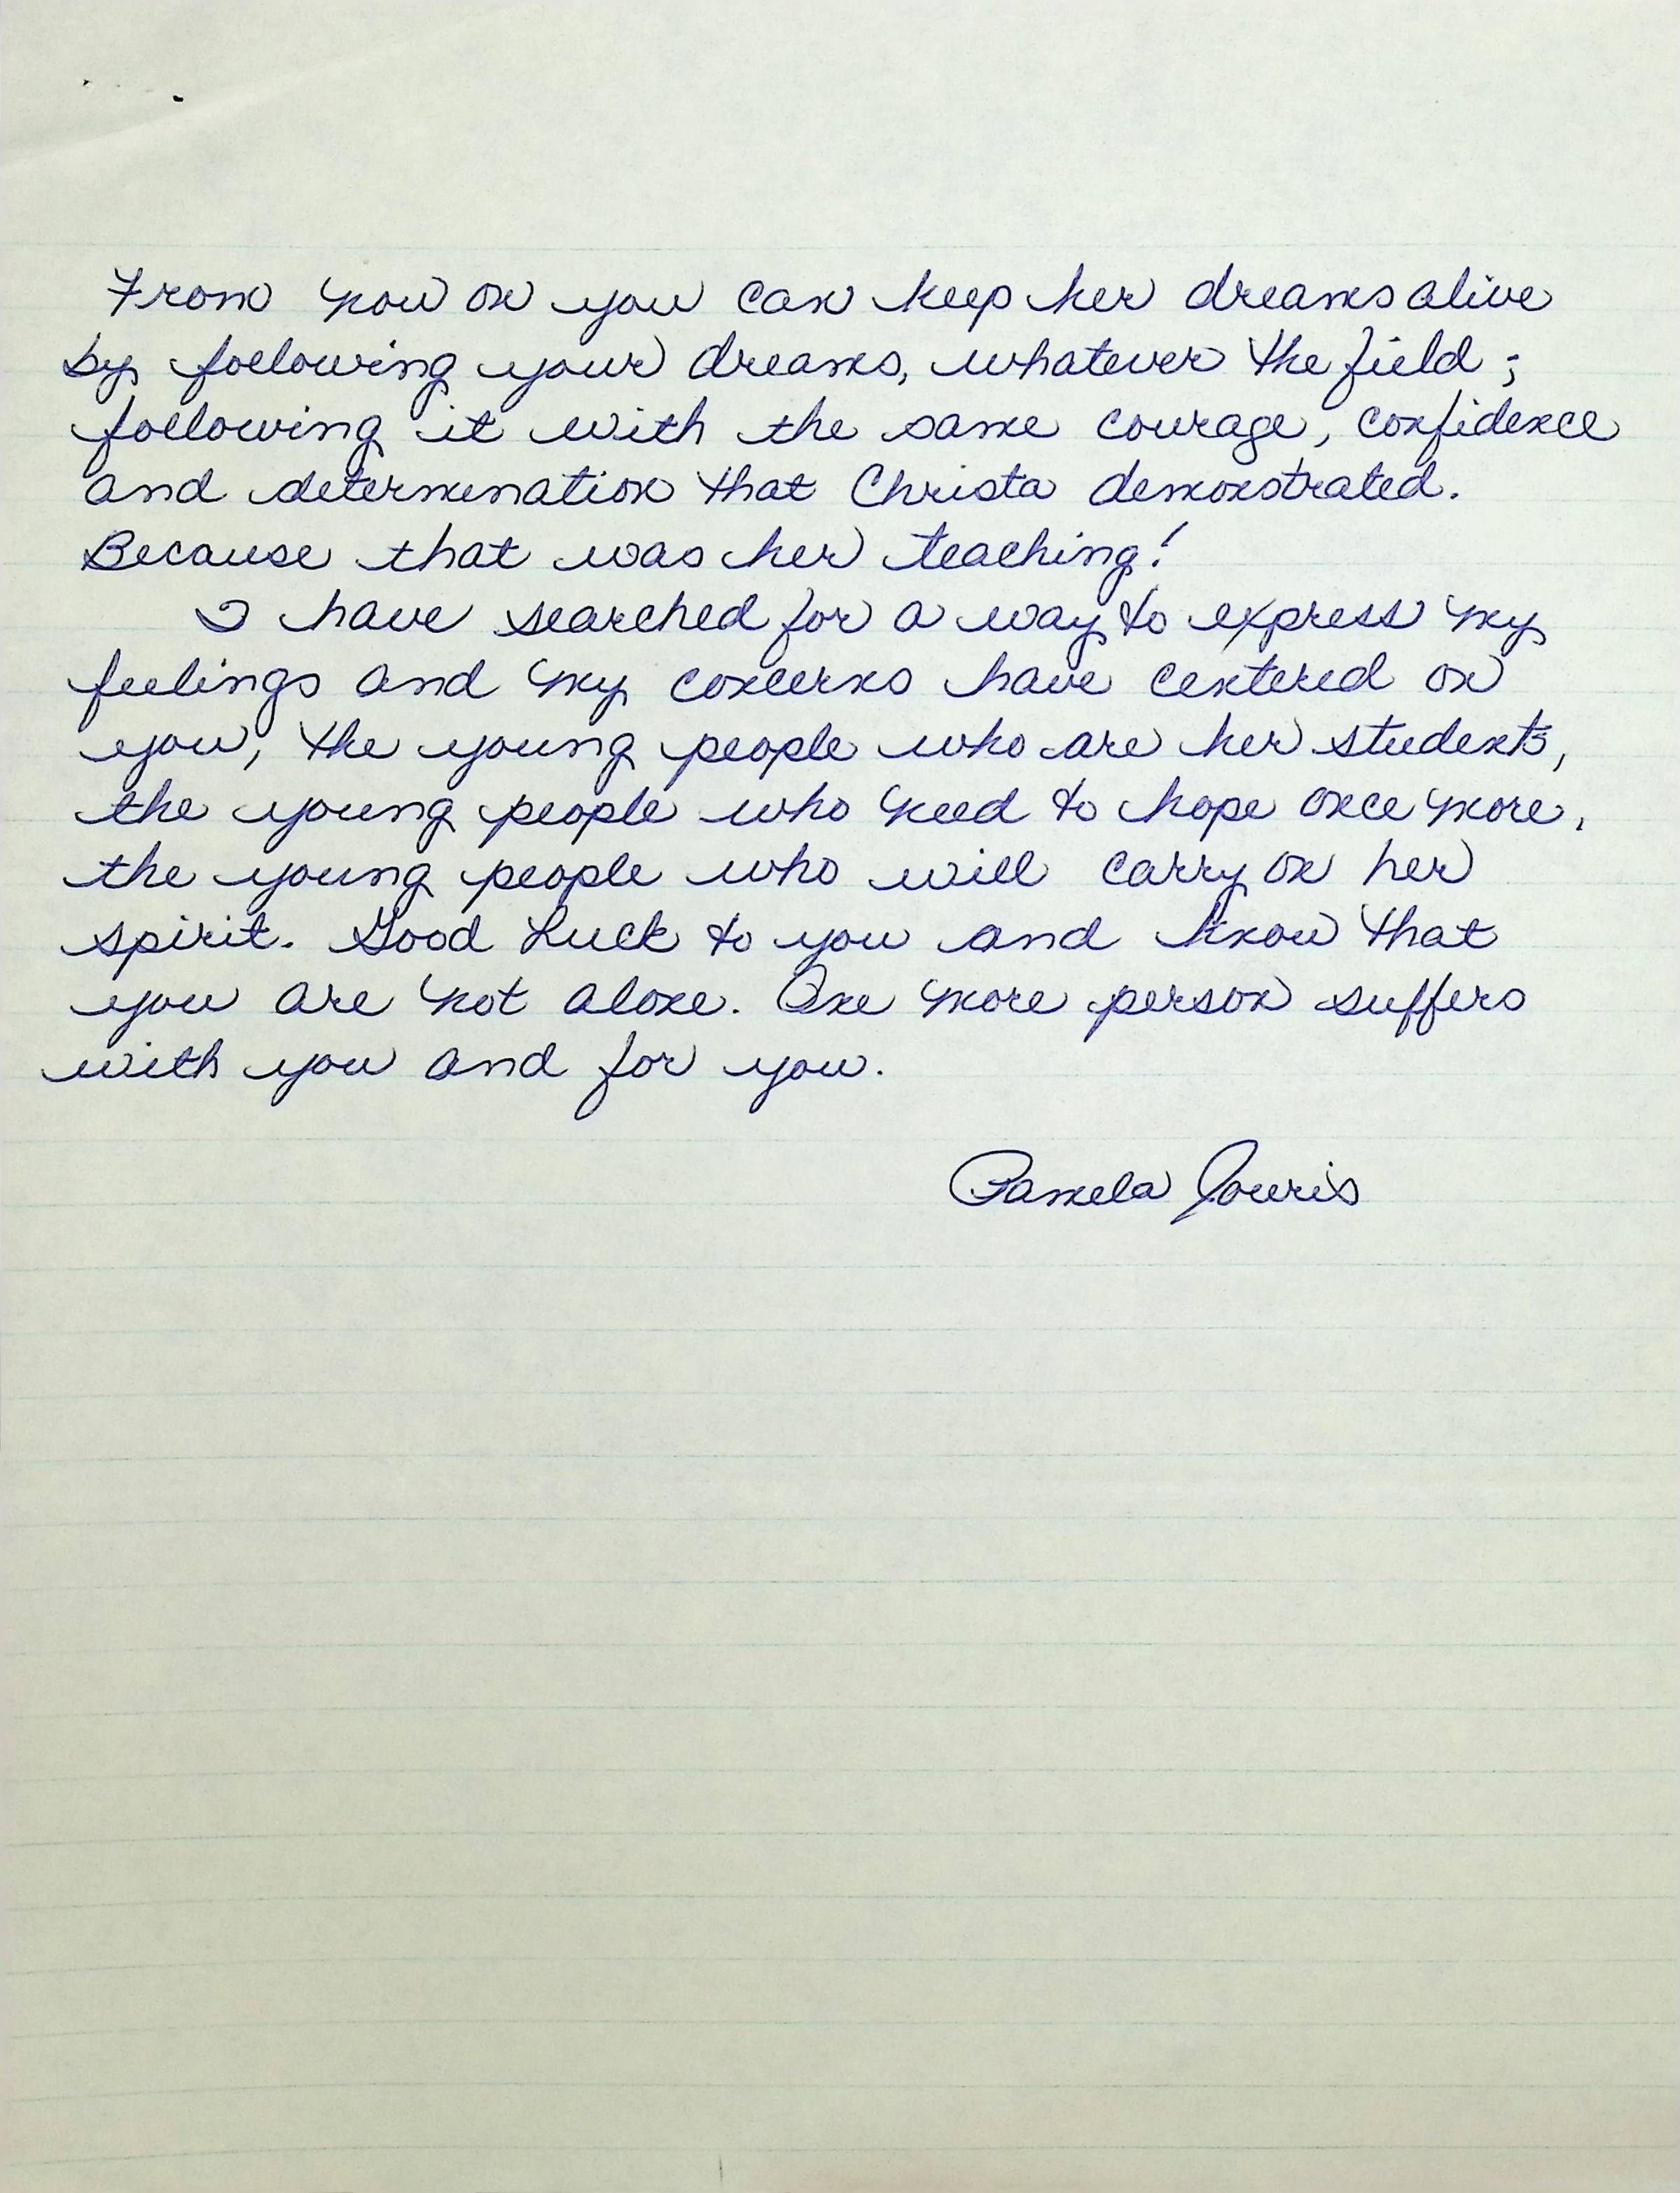 From now on you can keep her dreams alive
by following your dreams, whatever the field;
following it with the same courage, confidence
and determination that Christa demonstrated.
Because that was her teaching!
I have searched for a way to express my
feelings and my concerns have centered on
you, the young people who are her students,
the young people who need to hope once more,
the young people who will carry on her
spirit. Good Luck to you and know that
you are not alone. One more person suffers
with you and for you.
Pamela Jouris